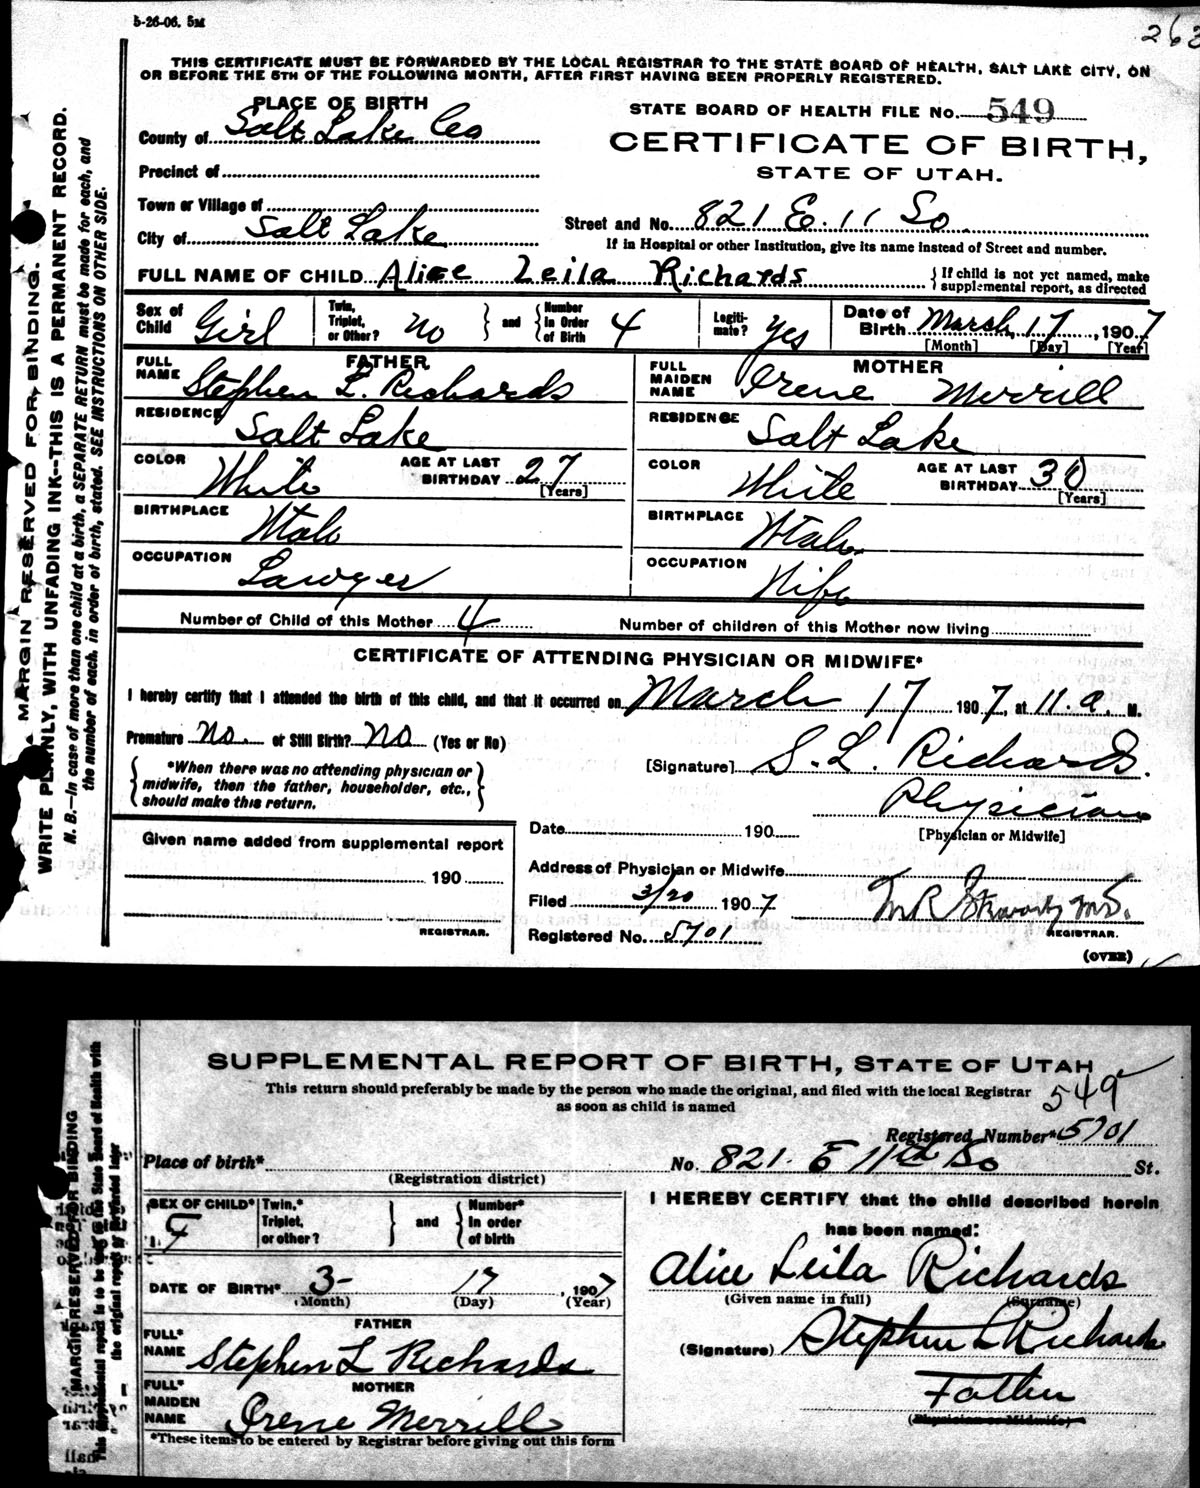 5-26-06. 5M
263
THIS CERTIFICATE MUST BE FORWARDED BY THE LOCAL REGISTRAR TO THE STATE BOARD OF HEALTH, SALT LAKE CITY, ON
OR BEFORE THE 5TH OF THE FOLLOWING MONTH, AFTER FIRST HAVING BEEN PROPERLY REGISTERED.
MARGIN RESERVED FOR BINDING.
WRITE PLAINLY, WITH UNFADING INK--THIS IS A PERMANENT RECORD.
N. B.—In case of more than one child at a birth, a SEPARATE RETURN must be made for each, and
the number of each, in order of birth, stated. SEE INSTRUCTIONS ON OTHER SIDE.
PLACE OF BIRTH
County of Salt Lake Co
Precinct of
Town or Village of
City of Salt Lake
STATE BOARD OF HEALTH FILE No. 549
CERTIFICATE OF BIRTH,
STATE OF UTAH.
Street and No. 821 E. 11 So
If in Hospital or other Institution, give its name instead of Street and number.
FULL NAME OF CHILD Alice Leila Richards
{ If child is not yet named, make
supplemental report, as directed
Sex of Child Girl
Twin, Triplet, or Other? No } and { Number In Order of Birth 4
Legitimate? Yes
Date of Birth March 17, 1907
[Month] [Day] [Year]
FATHER
FULL NAME Stephen L. Richards
RESIDENCE Salt Lake
COLOR White AGE AT LAST BIRTHDAY 27 [Years]
BIRTHPLACE Utah
OCCUPATION Lawyer
MOTHER
FULL MAIDEN NAME Irene Merrill
RESIDENCE Salt Lake
COLOR White AGE AT LAST BIRTHDAY 30 [Years]
BIRTHPLACE Utah
OCCUPATION Wife
Number of Child of this Mother 4 Number of children of this Mother now living
CERTIFICATE OF ATTENDING PHYSICIAN OR MIDWIFE*
I hereby certify that I attended the birth of this child, and that it occurred on March 17 1907, at 11. a. M.
Premature No. or Still Birth? No (Yes or No)
{ *When there was no attending physician or
midwife, then the father, householder, etc.,
should make this return. }
[Signature] S. L. Richards.
Physician
[Physician or Midwife]
Given name added from supplemental report
190
REGISTRAR.
Date 190
Address of Physician or Midwife
Filed 3/20 1907
Registered No. 5701
REGISTRAR.
(OVER)
SUPPLEMENTAL REPORT OF BIRTH, STATE OF UTAH
This return should preferably be made by the person who made the original, and filed with the local Registrar
as soon as child is named
549
MARGIN RESERVED FOR BINDING
the original report
Registered Number* 5701
Place of birth*
(Registration district)
No. 821. E 11th So St.
SEX OF CHILD* F
Twin,* Triplet, or other? } and { Number* In order of birth
DATE OF BIRTH* 3- 17, 1907
(Month) (Day) (Year)
FATHER
FULL* NAME Stephen L Richards
MOTHER
FULL* MAIDEN NAME Irene Merrill
*These items to be entered by Registrar before giving out this form
I HEREBY CERTIFY that the child described herein
has been named:
Alice Leila Richards
(Given name in full) (Surname)
(Signature) Stephen L Richards
Father
(Physician or Midwife)